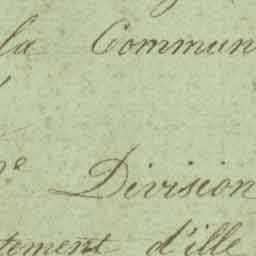 la Commun
e Division
tement d'ille